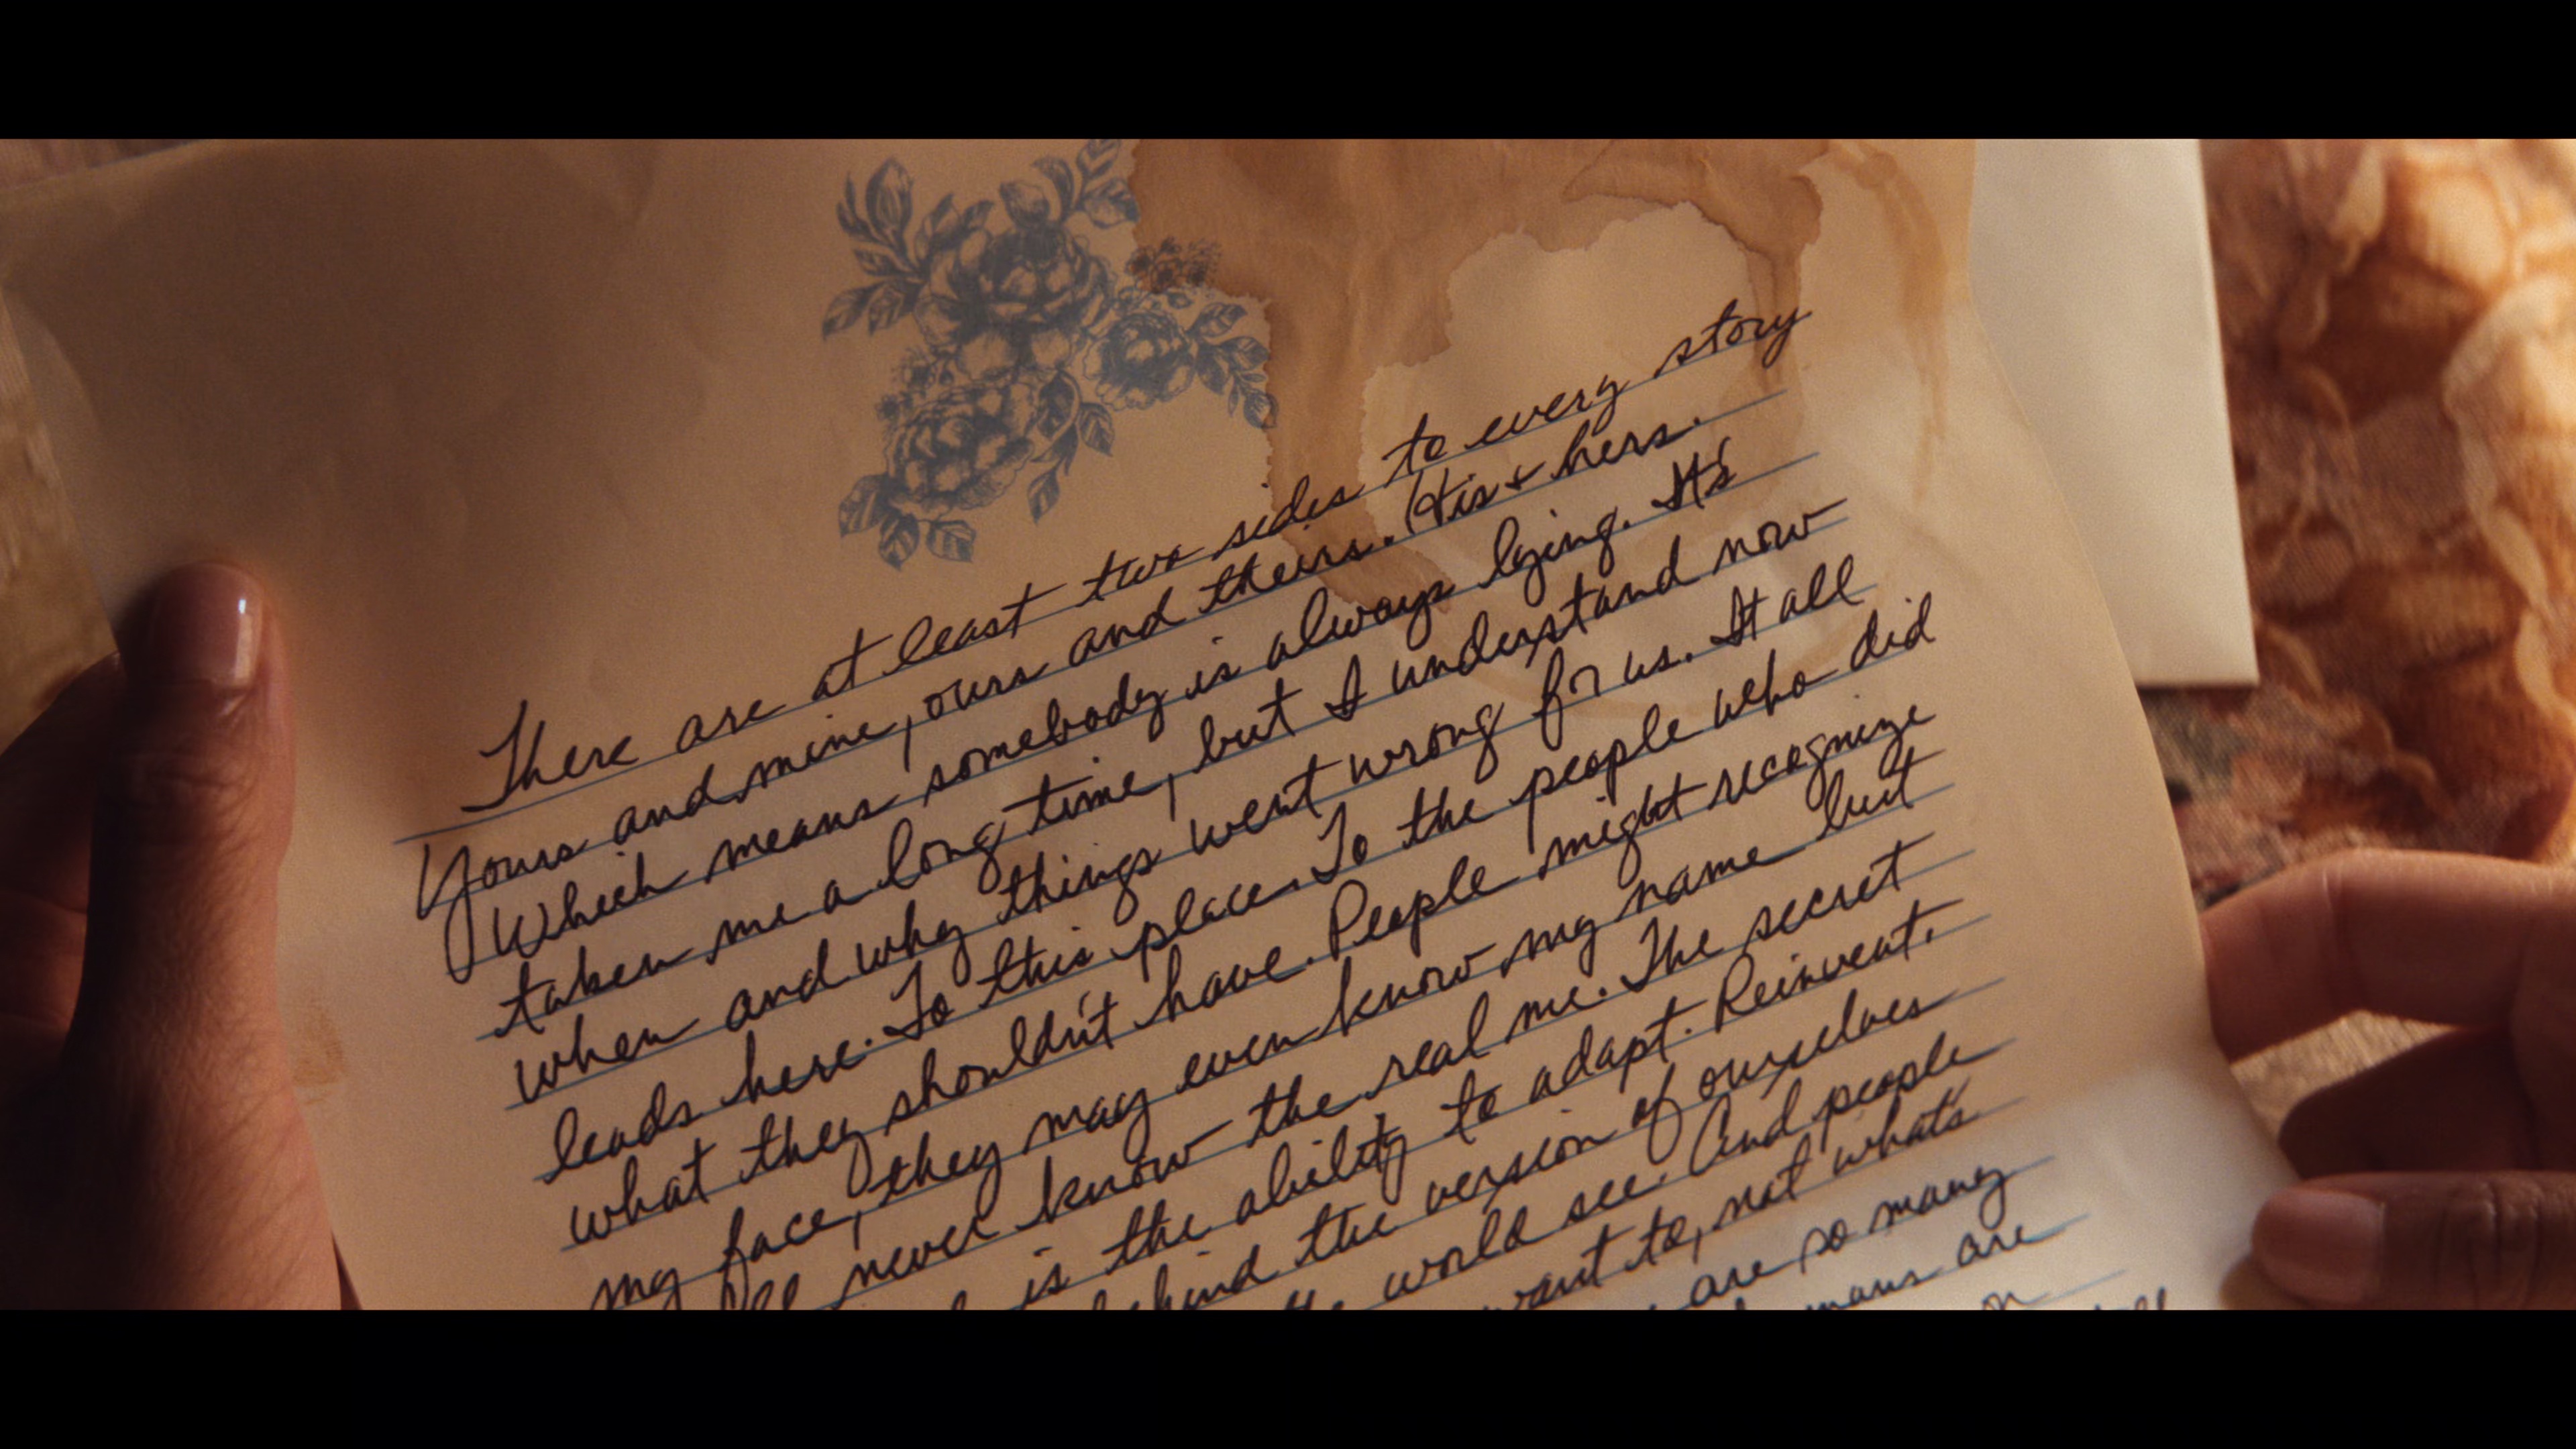 There are at least two sides to every story
Yours and mine, ours and theirs. His & hers.
Which means somebody is always lying. It's
taken me a long time, but I understand now
when and why things went wrong for us. It all
leads here. To this place. To the people who did
what they shouldn't have. People might recognize
my face, they may even know my name but
never know the real me. The secret
is the ability to adapt. Reinvent.
the version of ourselves
world see. And people
want to, not what's
are so many
are
on